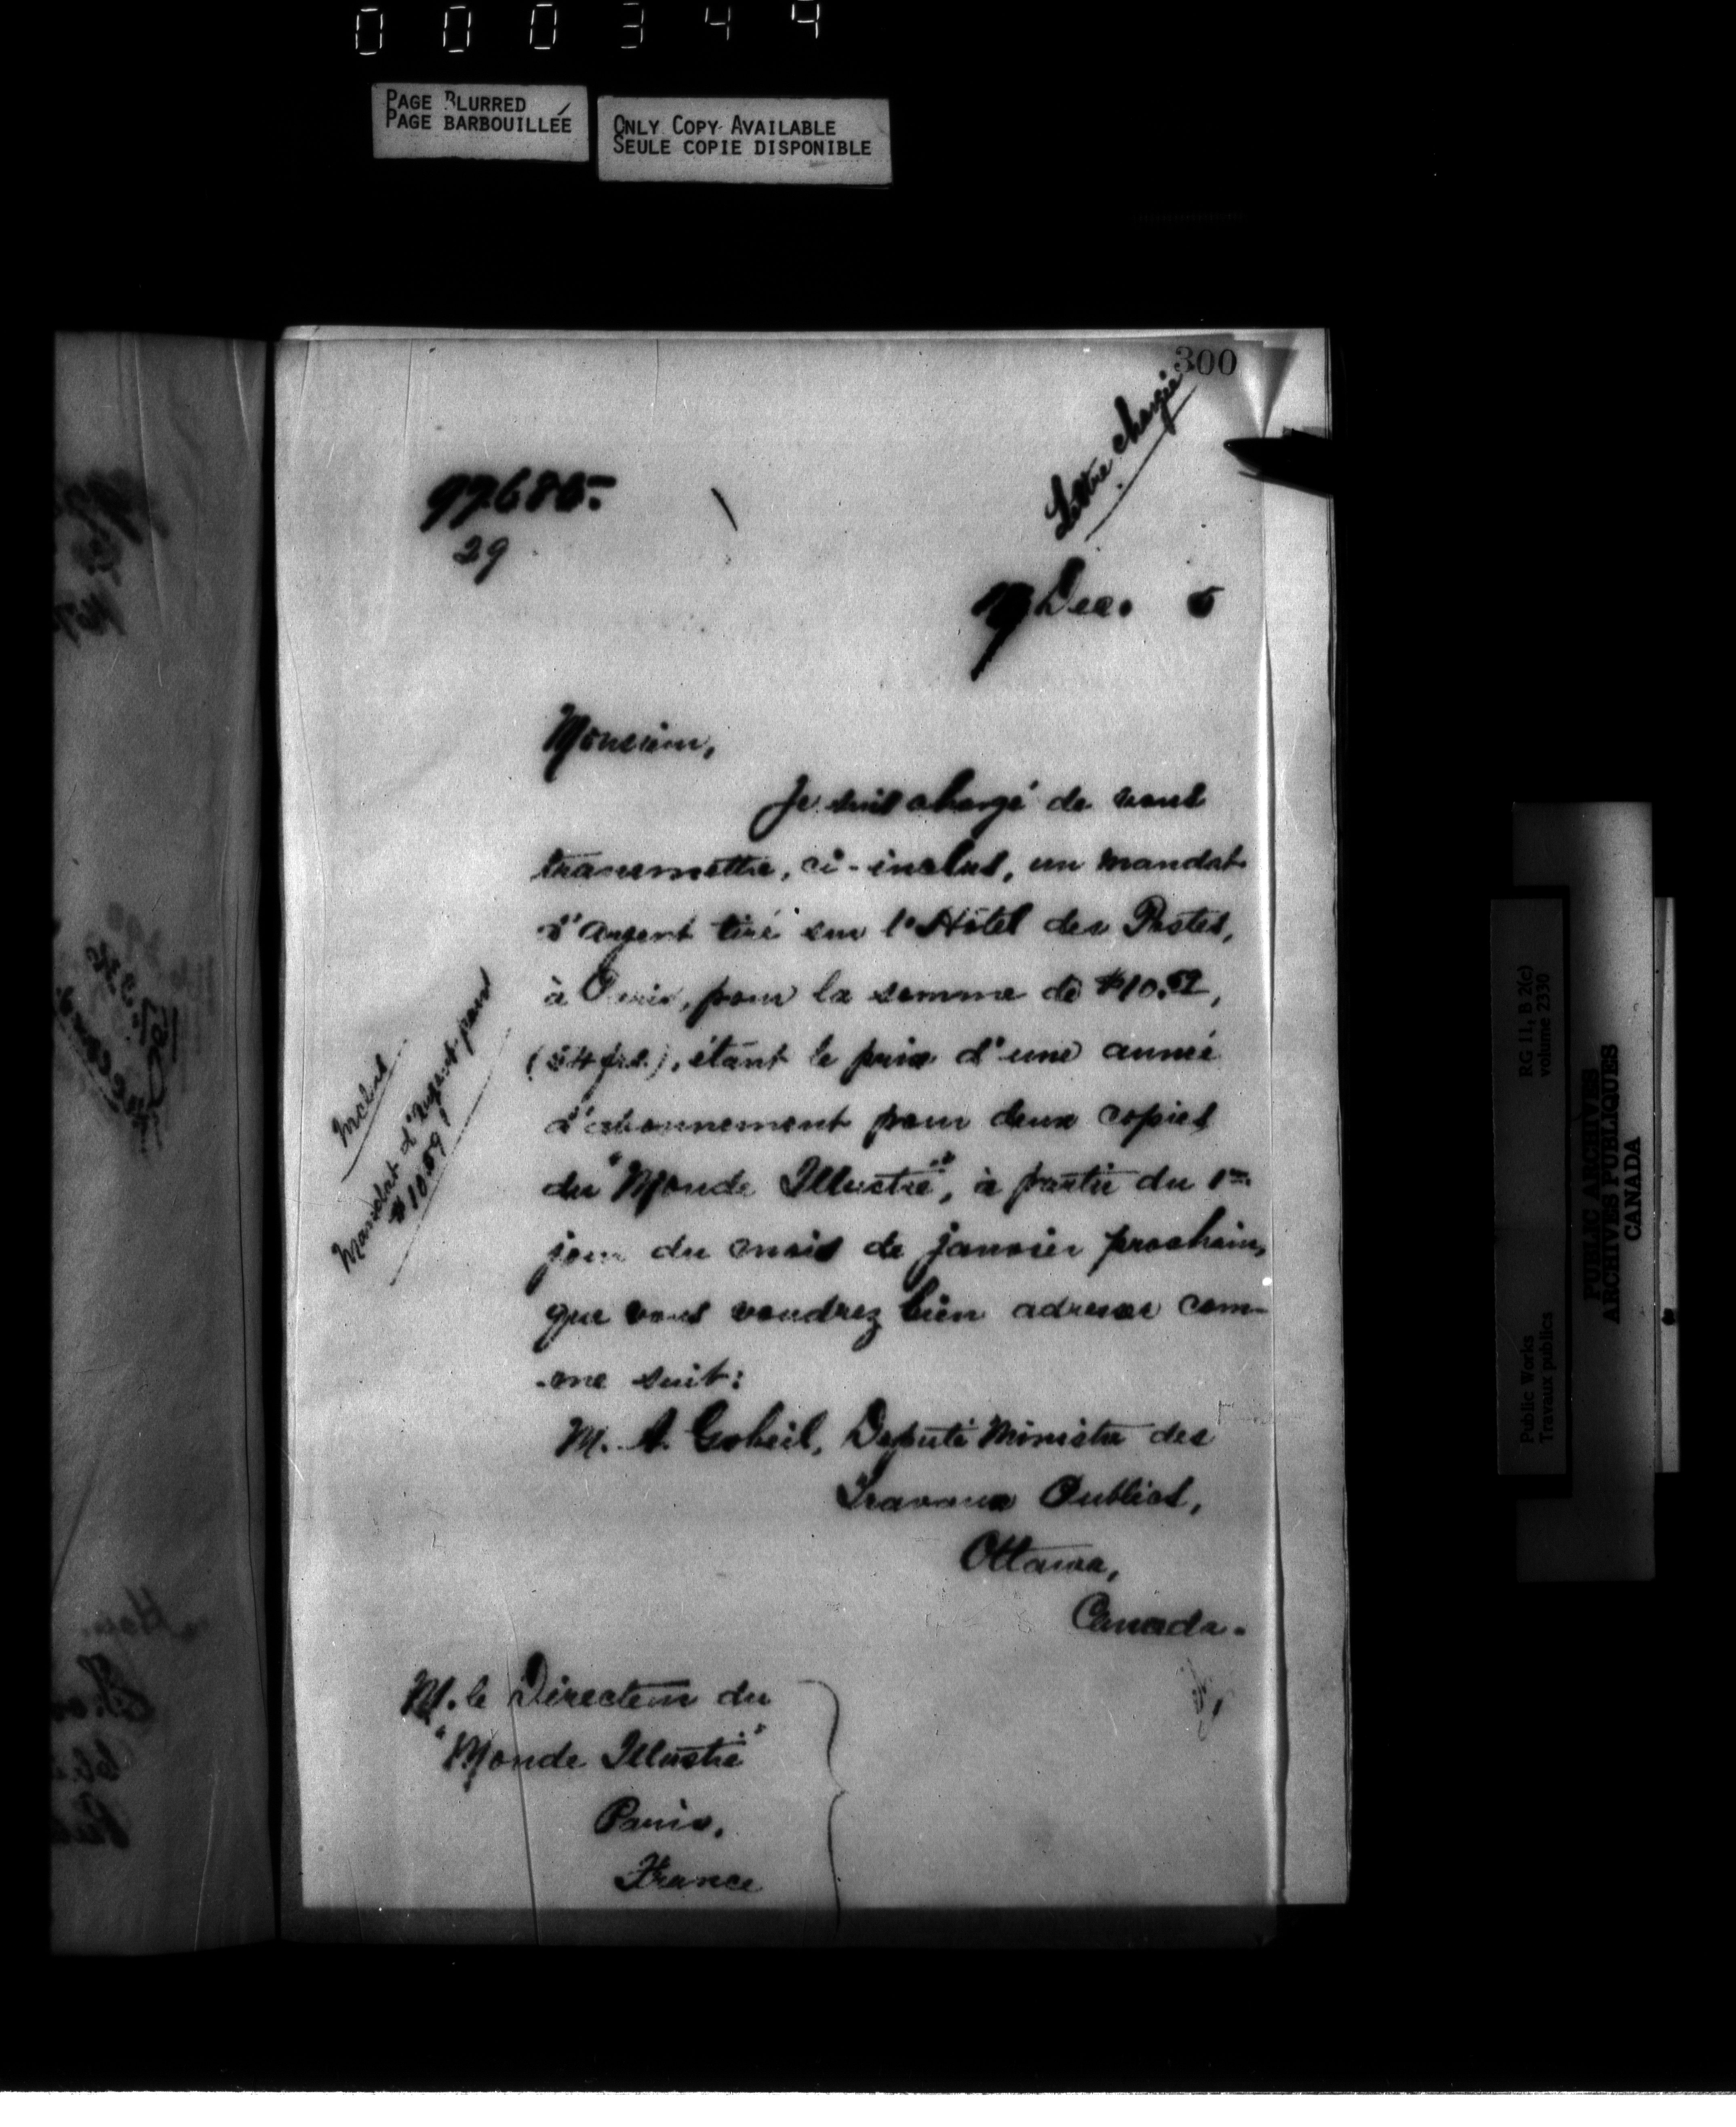 000344
PAGE BLURRED
PAGE BARBOUILLÉE
ONLY COPY AVAILABLE
SEULE COPIE DISPONIBLE
300
Lettre chargée
97685
29
Dec. 5
Monsieur,
Je suis chargé de vous
transmettre, ci-inclus, un mandat
d'argent tiré sur l'Hôtel des Postes,
à Paris, pour la somme de $10.59,
(54 frs.), étant le prix d'une année
d'abonnement pour deux copies
du "Monde Illustré", à partir du 1er
jour du mois de janvier prochain,
que vous voudrez bien adresser com-
me suit:
M. A. Gobeil, Député Ministre des
Travaux Publics,
Ottawa,
Canada.
Inclus
Mandat d'Argent pour
$10.59
M. le Directeur du
"Monde Illustré"
Paris,
France
RG 11, B 2(c)
volume 2330
Public Works
Travaux publics
PUBLIC ARCHIVES
ARCHIVES PUBLIQUES
CANADA